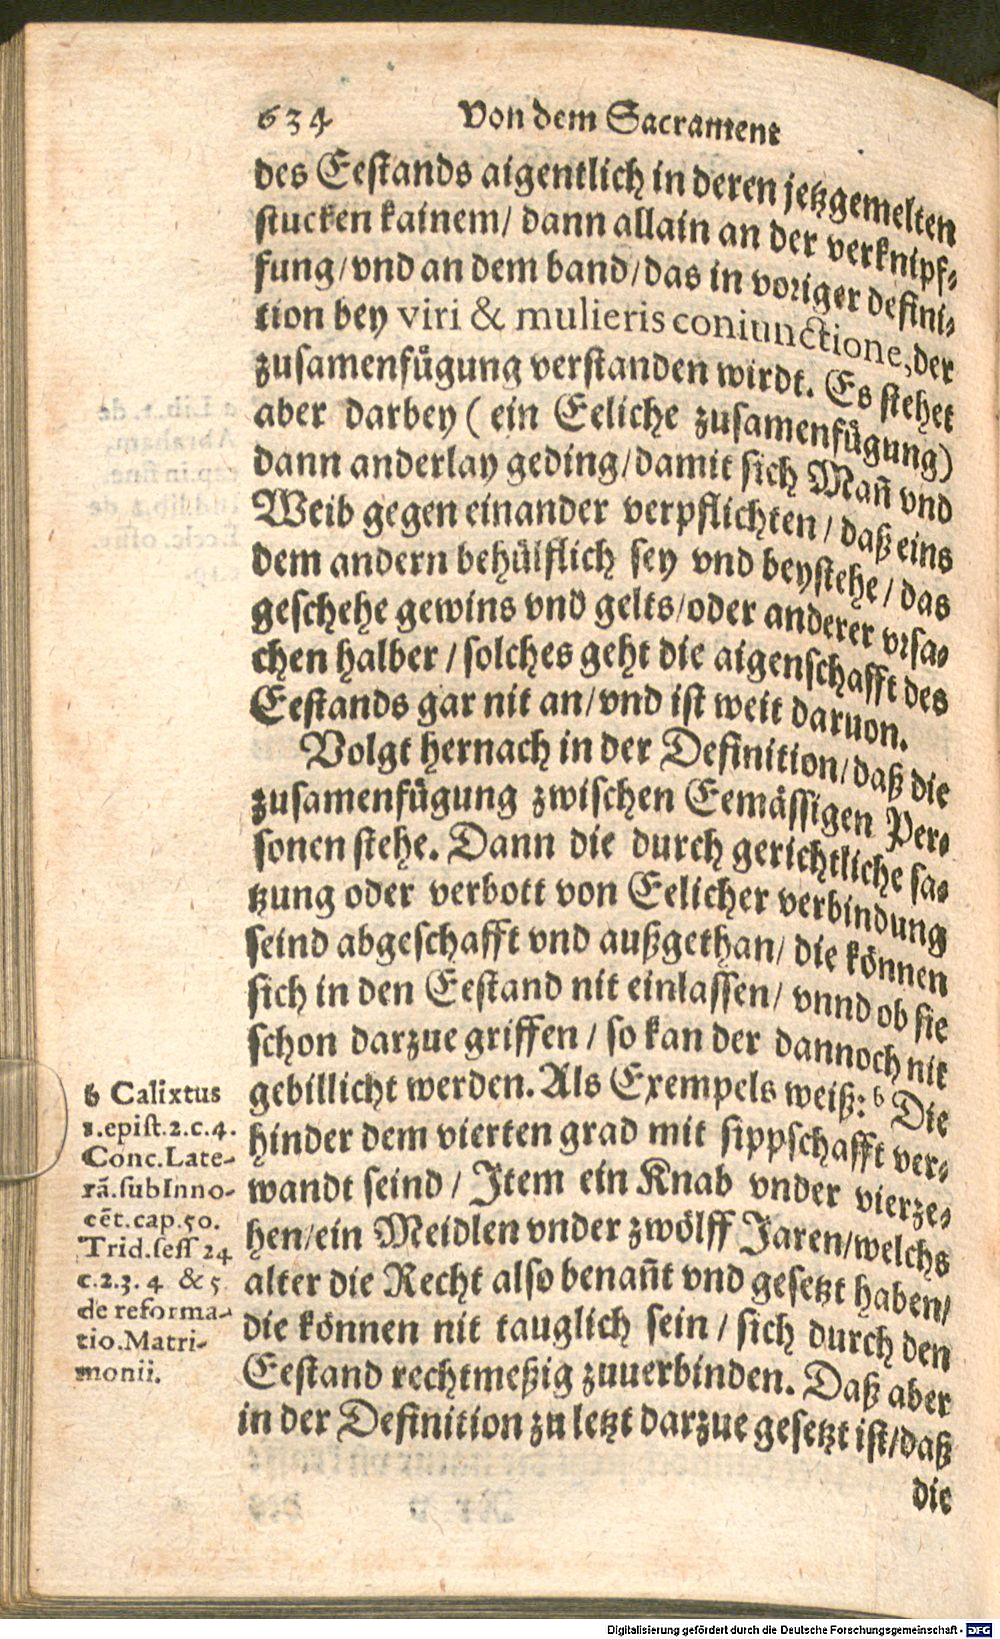 634 Von dem Sacrament
des Eestands aigentlich in deren jetzgemelten
stucken kainem/ dann allain an der verknipf-
fung/vnd an dem band/das in voriger defini-
tion bey viri & mulieris coniunctione, der
zusamenfügung verstanden wirdt. Es stehet
aber darbey ( ein Eeliche zusamenfügung)
dann anderlay geding/damit sich Mañ vnd
Weib gegen einander verpflichten / daß eins
dem andern behülflich sey vnd beystehe / das
geschehe gewins vnd gelts/oder anderer vrsa-
chen halber / solches geht die aigenschafft des
Eestands gar nit an/vnd ist weit daruon.
Volgt hernach in der Definition/daß die
zusamenfügung zwischen Eemässigen Per-
sonen stehe. Dann die durch gerichtliche sa-
tzung oder verbott von Eelicher verbindung
seind abgeschafft vnd außgethan/ die können
sich in den Eestand nit einlassen/ vnnd ob sie
schon darzue griffen / so kan der dannoch nit
gebillicht werden. Als Exempels weiß: b Die
hinder dem vierten grad mit sippschafft ver-
wandt seind / Item ein Knab vnder vierze-
hen/ein Meidlen vnder zwölff Jaren/welchs
alter die Recht also benañt vnd gesetzt haben/
die können nit tauglich sein / sich durch den
Eestand rechtmeßig zuuerbinden. Daß aber
in der Definition zu letzt darzue gesetzt ist/daß
die
b Calixtus
1.epist.2.c.4.
Conc.Late-
rã.sub Inno-
cẽt.cap.50.
Trid.sess 24
c.2.3. 4 & 5
de reforma-
tio.Matri-
monii.
Digitalisierung gefördert durch die Deutsche Forschungsgemeinschaft - DFG